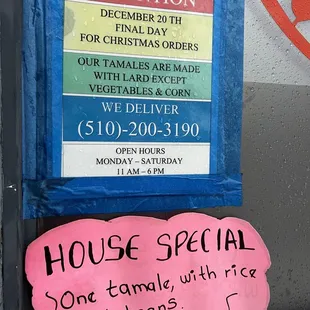 DECEMBER 20 TH
FINAL DAY
FOR CHRISTMAS ORDERS
OUR TAMALES ARE MADE
WITH LARD EXCEPT
VEGETABLES & CORN
WE DELIVER
(510)-200-3190
OPEN HOURS
MONDAY – SATURDAY
11 AM – 6 PM
HOUSE SPECIAL
One tamale, with rice